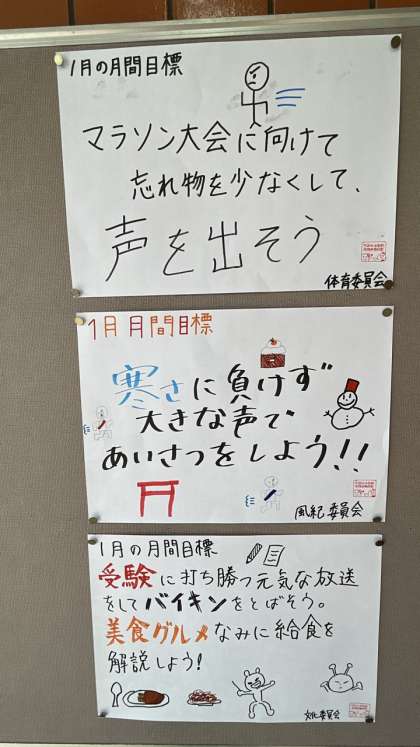 1月の月間目標
マラソン大会に向けて
忘れ物を少なくして、
声を出そう
体育委員会
1月 月間目標
寒さに負けず
大きな声で
あいさつをしよう!!
風紀委員会
1月の月間目標
受験に打ち勝つ元気な放送
をしてバイキンをとばそう。
美食グルメなみに給食を
解説しよう!